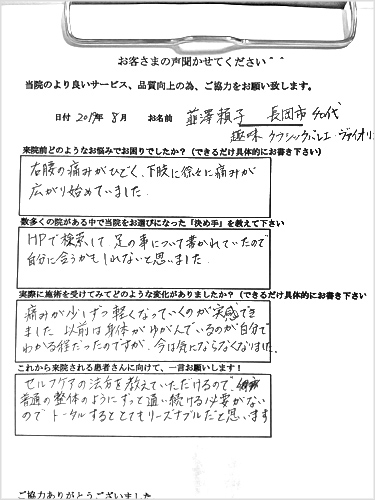 お客さまの声聞かせてください^^
当院のより良いサービス、品質向上の為、ご協力をお願い致します。
日付 2019年 8月 お名前 韮澤頼子 長岡市 40代
趣味 クラシックバレエ・ヴァイオリ
来院前どのようなお悩みでお困りでしたか?(できるだけ具体的にお書き下さい)
右腰の痛みがひどく、下肢に徐々に痛みが
広がり始めていました
数多くの院がある中で当院をお選びになった「決め手」を教えて下さい
HPで検索して 足の事について書かれていたので
自分に合うかもしれないと思いました
実際に施術を受けてみてどのような変化がありましたか?(できるだけ具体的にお書き下さい
痛みが少しずつ軽くなっていくのが実感でき
ました 以前は身体がゆがんでいるのが自分で
わかる程だったのですが、今は気にならなくなりました
これから来院される患者さんに向けて、一言お願いします!
セルフケアの法方を教えていただけるので、
普通の整体のようにずっと通い続ける必要がない
ので トータルするととてもリーズナブルだと思います
ご協力ありがとうございました